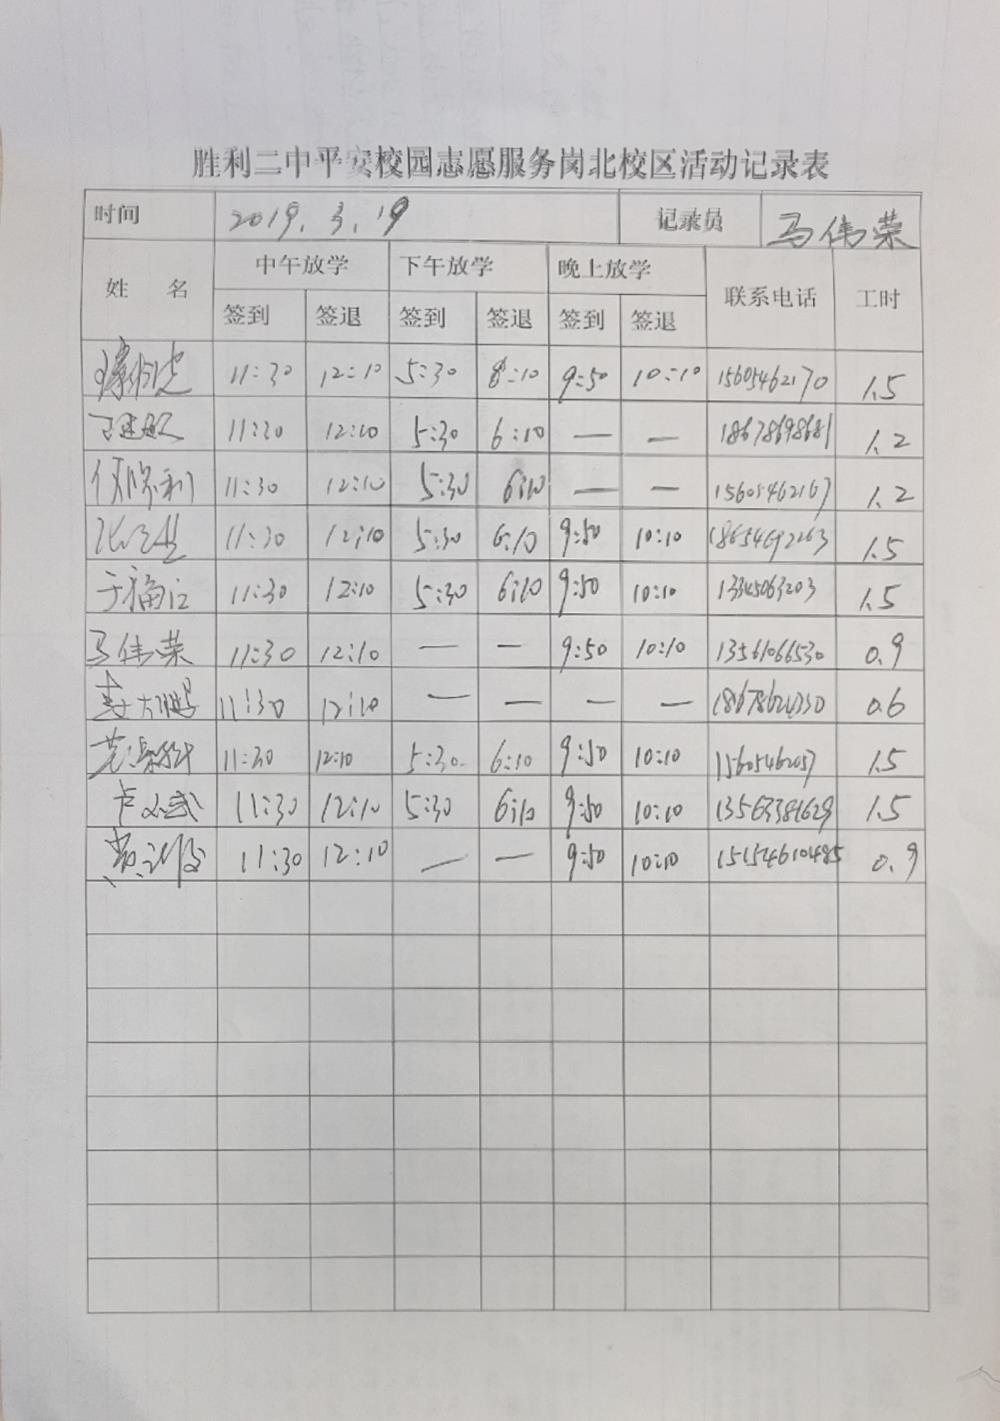 胜利二中平安校园志愿服务岗北校区活动记录表
时间 2019.3.19 记录员 马伟荣
姓 名 中午放学 下午放学 晚上放学 联系电话 工时
签到 签退 签到 签退 签到 签退
11:30 12:10 5:30 8:10 9:50 10:10 15605462170 1.5
11:30 12:10 5:30 6:10 — — 18678698681 1.2
11:30 12:10 5:30 6:10 — — 15605462167 1.2
11:30 12:10 5:30 6:10 9:50 10:10 18654692263 1.5
于福江 11:30 12:10 5:30 6:10 9:50 10:10 13345063203 1.5
马伟荣 11:30 12:10 — — 9:50 10:10 13561066530 0.9
11:30 12:10 — — — — 0.6
11:30 12:10 5:30 6:10 9:50 10:10 15605462057 1.5
11:30 12:10 5:30 6:10 9:50 10:10 13563381629 1.5
11:30 12:10 — — 9:50 10:10 0.9